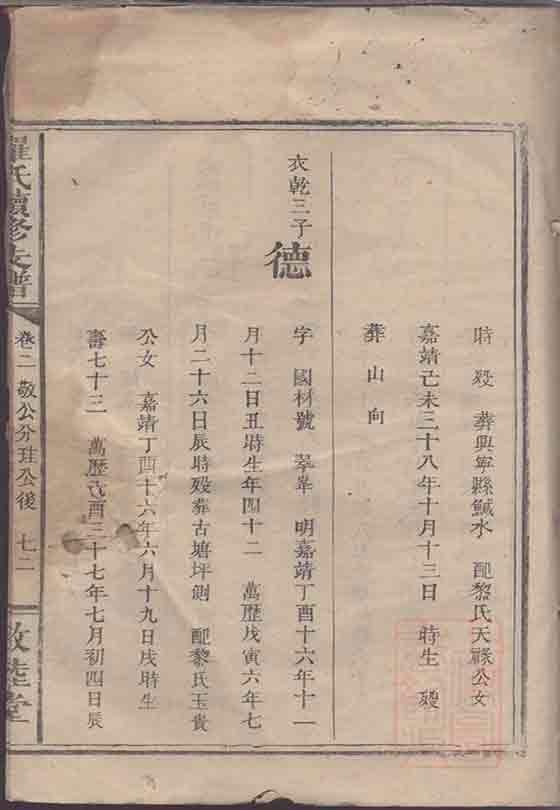 時 歿 葬興寧縣鰔水 配黎氏天祿公女
嘉靖己未三十八年十月十三日 時生 歿
葬山向
衣乾三子
德
字 國材號 翠峯 明嘉靖丁酉十六年十一
月十二日丑時生年四十二 萬歷戊寅六年七
月二十六日辰時歿葬古塘坪側 配黎氏玉貴
公女 嘉靖丁酉十六年六月十九日戌時生
壽七十三 萬歷己酉三十七年七月初四日辰
羅氏續修支譜
卷二敬公分珪公後 七二
敦陸堂